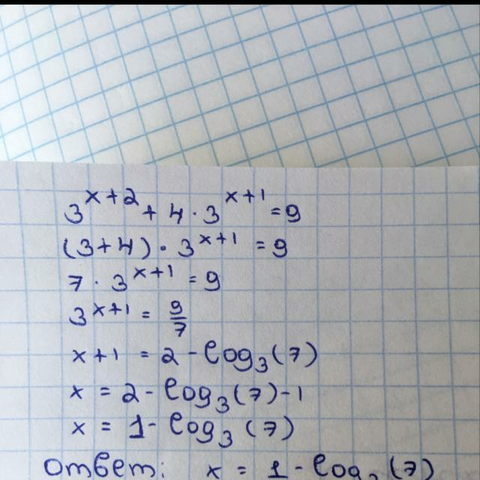 3^{x+2} + 4 · 3^{x+1} = 9
(3+4) · 3^{x+1} = 9
7 · 3^{x+1} = 9
3^{x+1} = 9/7
x+1 = 2 - log₃(7)
x = 2 - log₃(7) - 1
x = 1 - log₃(7)
Ответ: x = 1 - log₃(7)